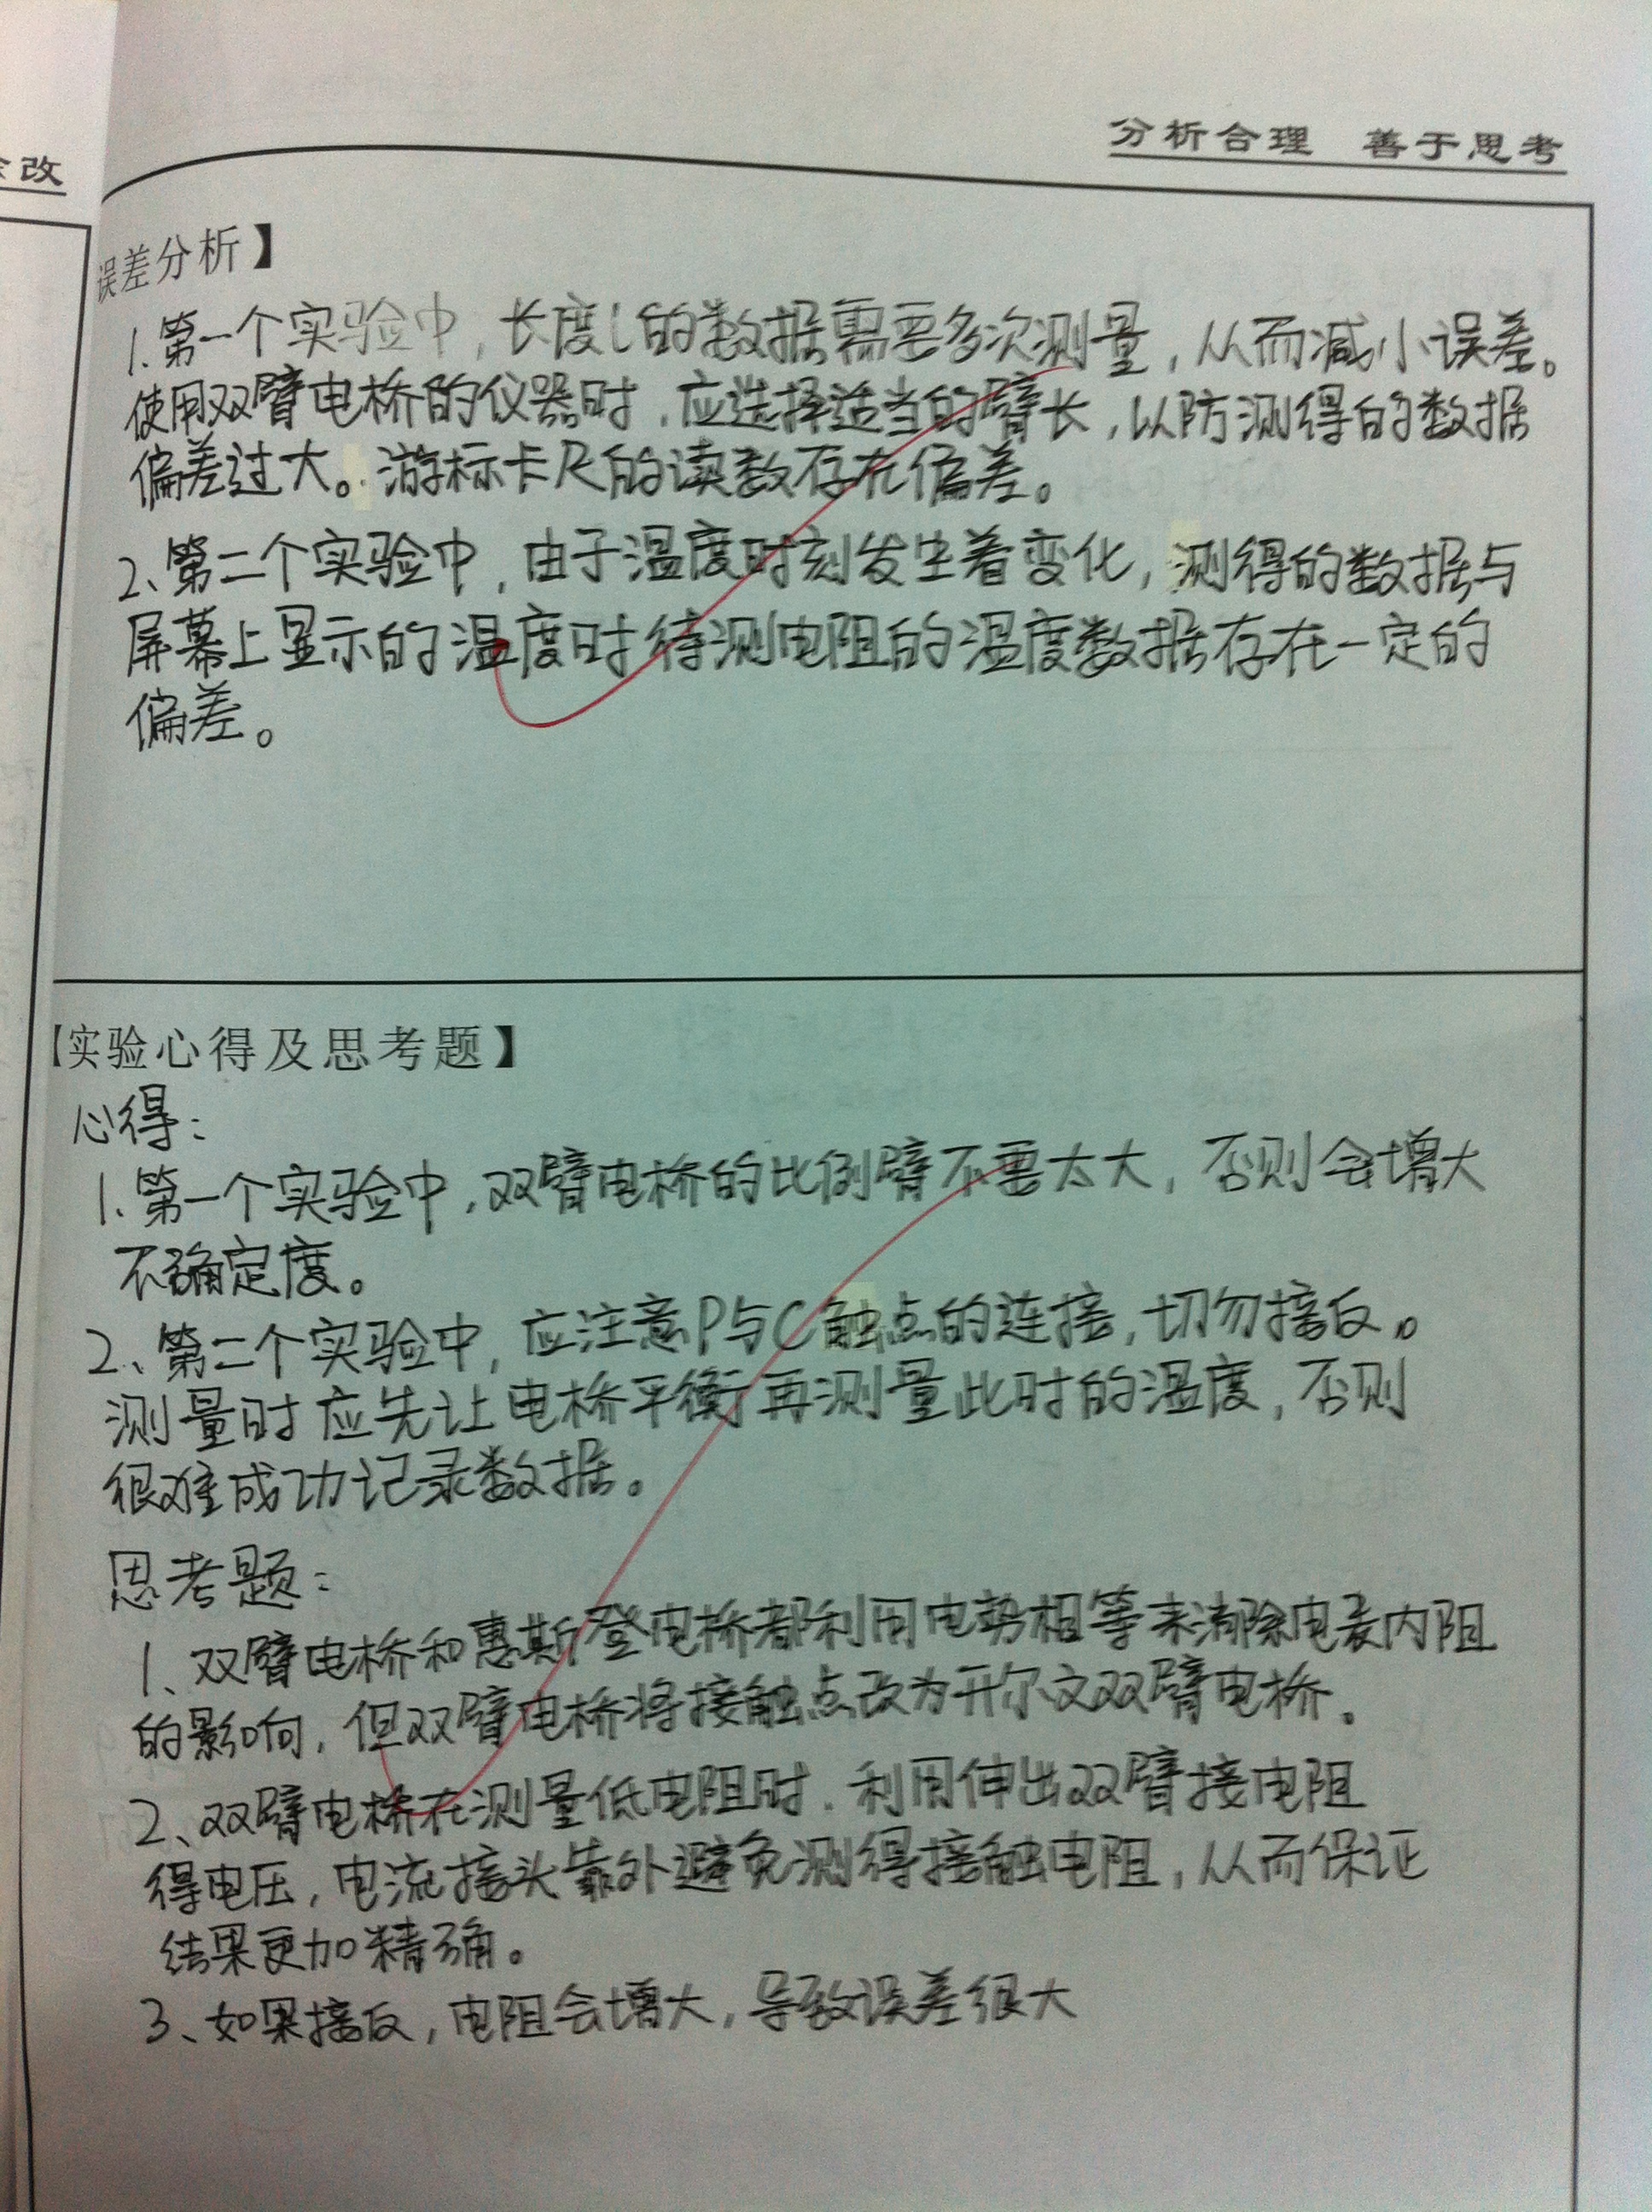 改
分析合理 善于思考
误差分析】
1.第一个实验中,长度l的数据需要多次测量,从而减小误差。
使用双臂电桥的仪器时,应选择适当的臂长,以防测得的数据
偏差过大。游标卡尺的读数存在偏差。
2、第二个实验中,由于温度时刻发生着变化,测得的数据与
屏幕上显示的温度时待测电阻的温度数据存在一定的
偏差。
【实验心得及思考题】
心得:
1.第一个实验中,双臂电桥的比例臂不要太大,否则会增大
不确定度。
2、第二个实验中,应注意P与C触点的连接,切勿接反。
测量时应先让电桥平衡再测量此时的温度,否则
很难成功记录数据。
思考题:
1、双臂电桥和惠斯登电桥都利用电势相等来消除电表内阻
的影响,但双臂电桥将接触点改为开尔文双臂电桥。
2、双臂电桥在测量低电阻时.利用伸出双臂接电阻
得电压,电流接头靠外避免测得接触电阻,从而保证
结果更加精确。
3、如果接反,电阻会增大,导致误差很大